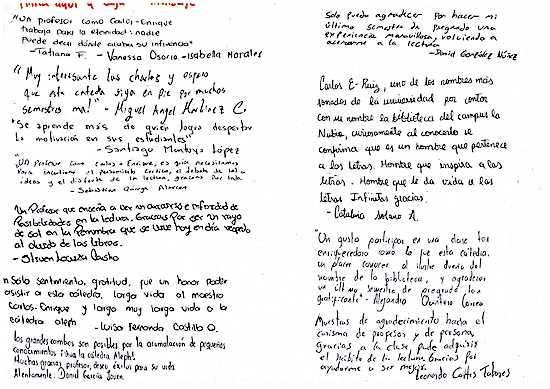 "Un profesor como Carlos-Enrique
trabaja para la eternidad: nadie
Puede decir dónde acaba su influencia"
- Tatiana F. - Vanessa Osorio - Isabella Morales
"Muy interesante las charlas y espero
que esta catedra siga en pie por muchos
semestres más!" - Miguel Angel Martínez C.
"Se aprende más de quien logra despertar
la motivación en sus estudiantes"
- Santiago Montoya López
"Un Profesor como Carlos-Enrique, es guía
para el pensamiento crítico, el debate de las
ideas y el disfrute de la lectura, gracias por todo.
- Sebastián
Un Profesor que enseña a ver un
Posibilidades en la lectura. Gracias por ser un rayo
de sol en la penumbra que se vive hoy en día respecto
al mundo de los libros.
-
"Solo sentimiento, gratitud, fue un honor poder
asistir a esta cátedra, larga vida al maestro
Carlos-Enrique y larga muy larga vida a la
cátedra aleph
- Luisa Fernanda Castillo O.
los grandes cambios son posibles por la acumulación de pequeños
conocimientos ¡viva la cátedra Aleph!
Muchas gracias, profesor, deseo éxitos para su vida
Atentamente: David García
Solo puedo agradecer por hacer mi
último semestre de pregrado una
experiencia maravillosa, volviendo a
acercarme a la lectura
- David González Núñez
Carlos E- Ruiz, uno de los nombres más
sonados de la universidad por contar
con su nombre la biblioteca del campus la
Nubia, curiosamente al conocerlo se
confirma que es un hombre que pertenece
a las letras. Hombre que inspira a las
letras. Hombre que le da vida a las
letras Infinitas gracias.
- Catalina
"Un gusto participar en una clase tan
enriquecedora como lo fue esta cátedra,
un placer conocer al ilustre dueño del
nombre de la biblioteca, y agradecer
un último semestre de pregrado tan
gratificante" - Alejandro Quintero Correa
Muestras de agradecimiento hacia el
carisma de profesor y de persona,
gracias a la clase, pude adquirir
el hábito de la lectura. Gracias por
ayudarme a ser mejor.
Leonardo